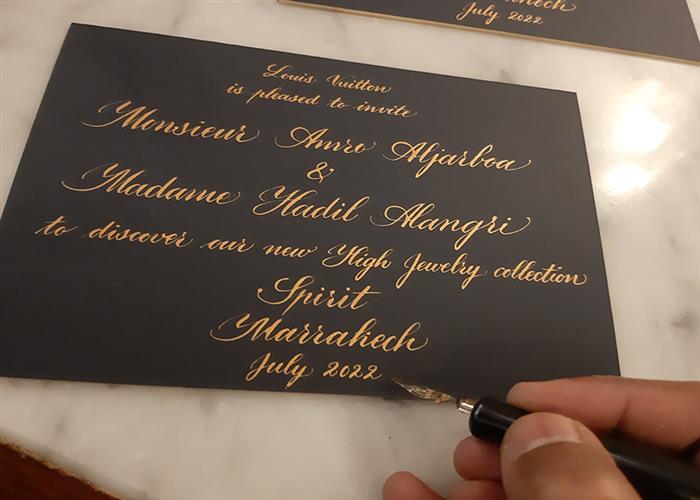 rrakech
July 2022
Louis Vuitton
is pleased to invite
Monsieur Amro Aljarboa
&
Madame Hadil Alangri
to discover our new High Jewelry collection
Spirit
Marrakech
July 2022